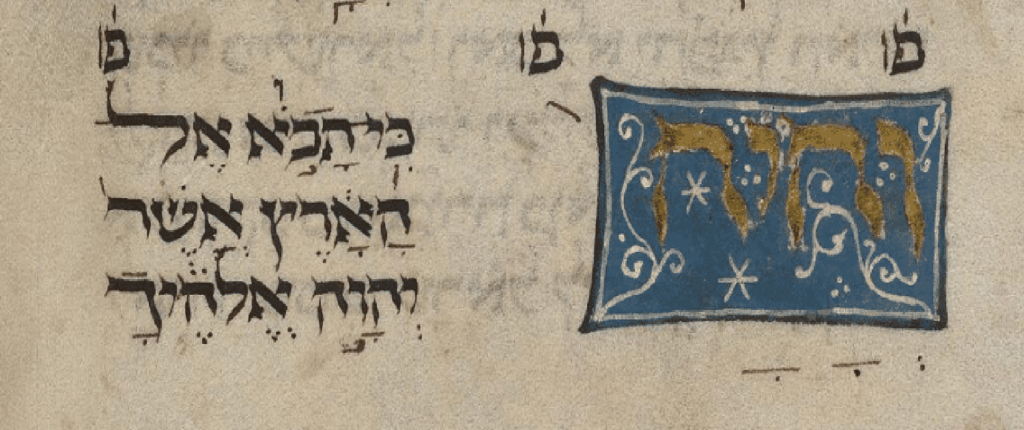 פ פ פ
וְהָיָה
כִּי תָבֹא אֶל
הָאָרֶץ אֲשֶׁר
יְהוָה אֱלֹהֶיךָ